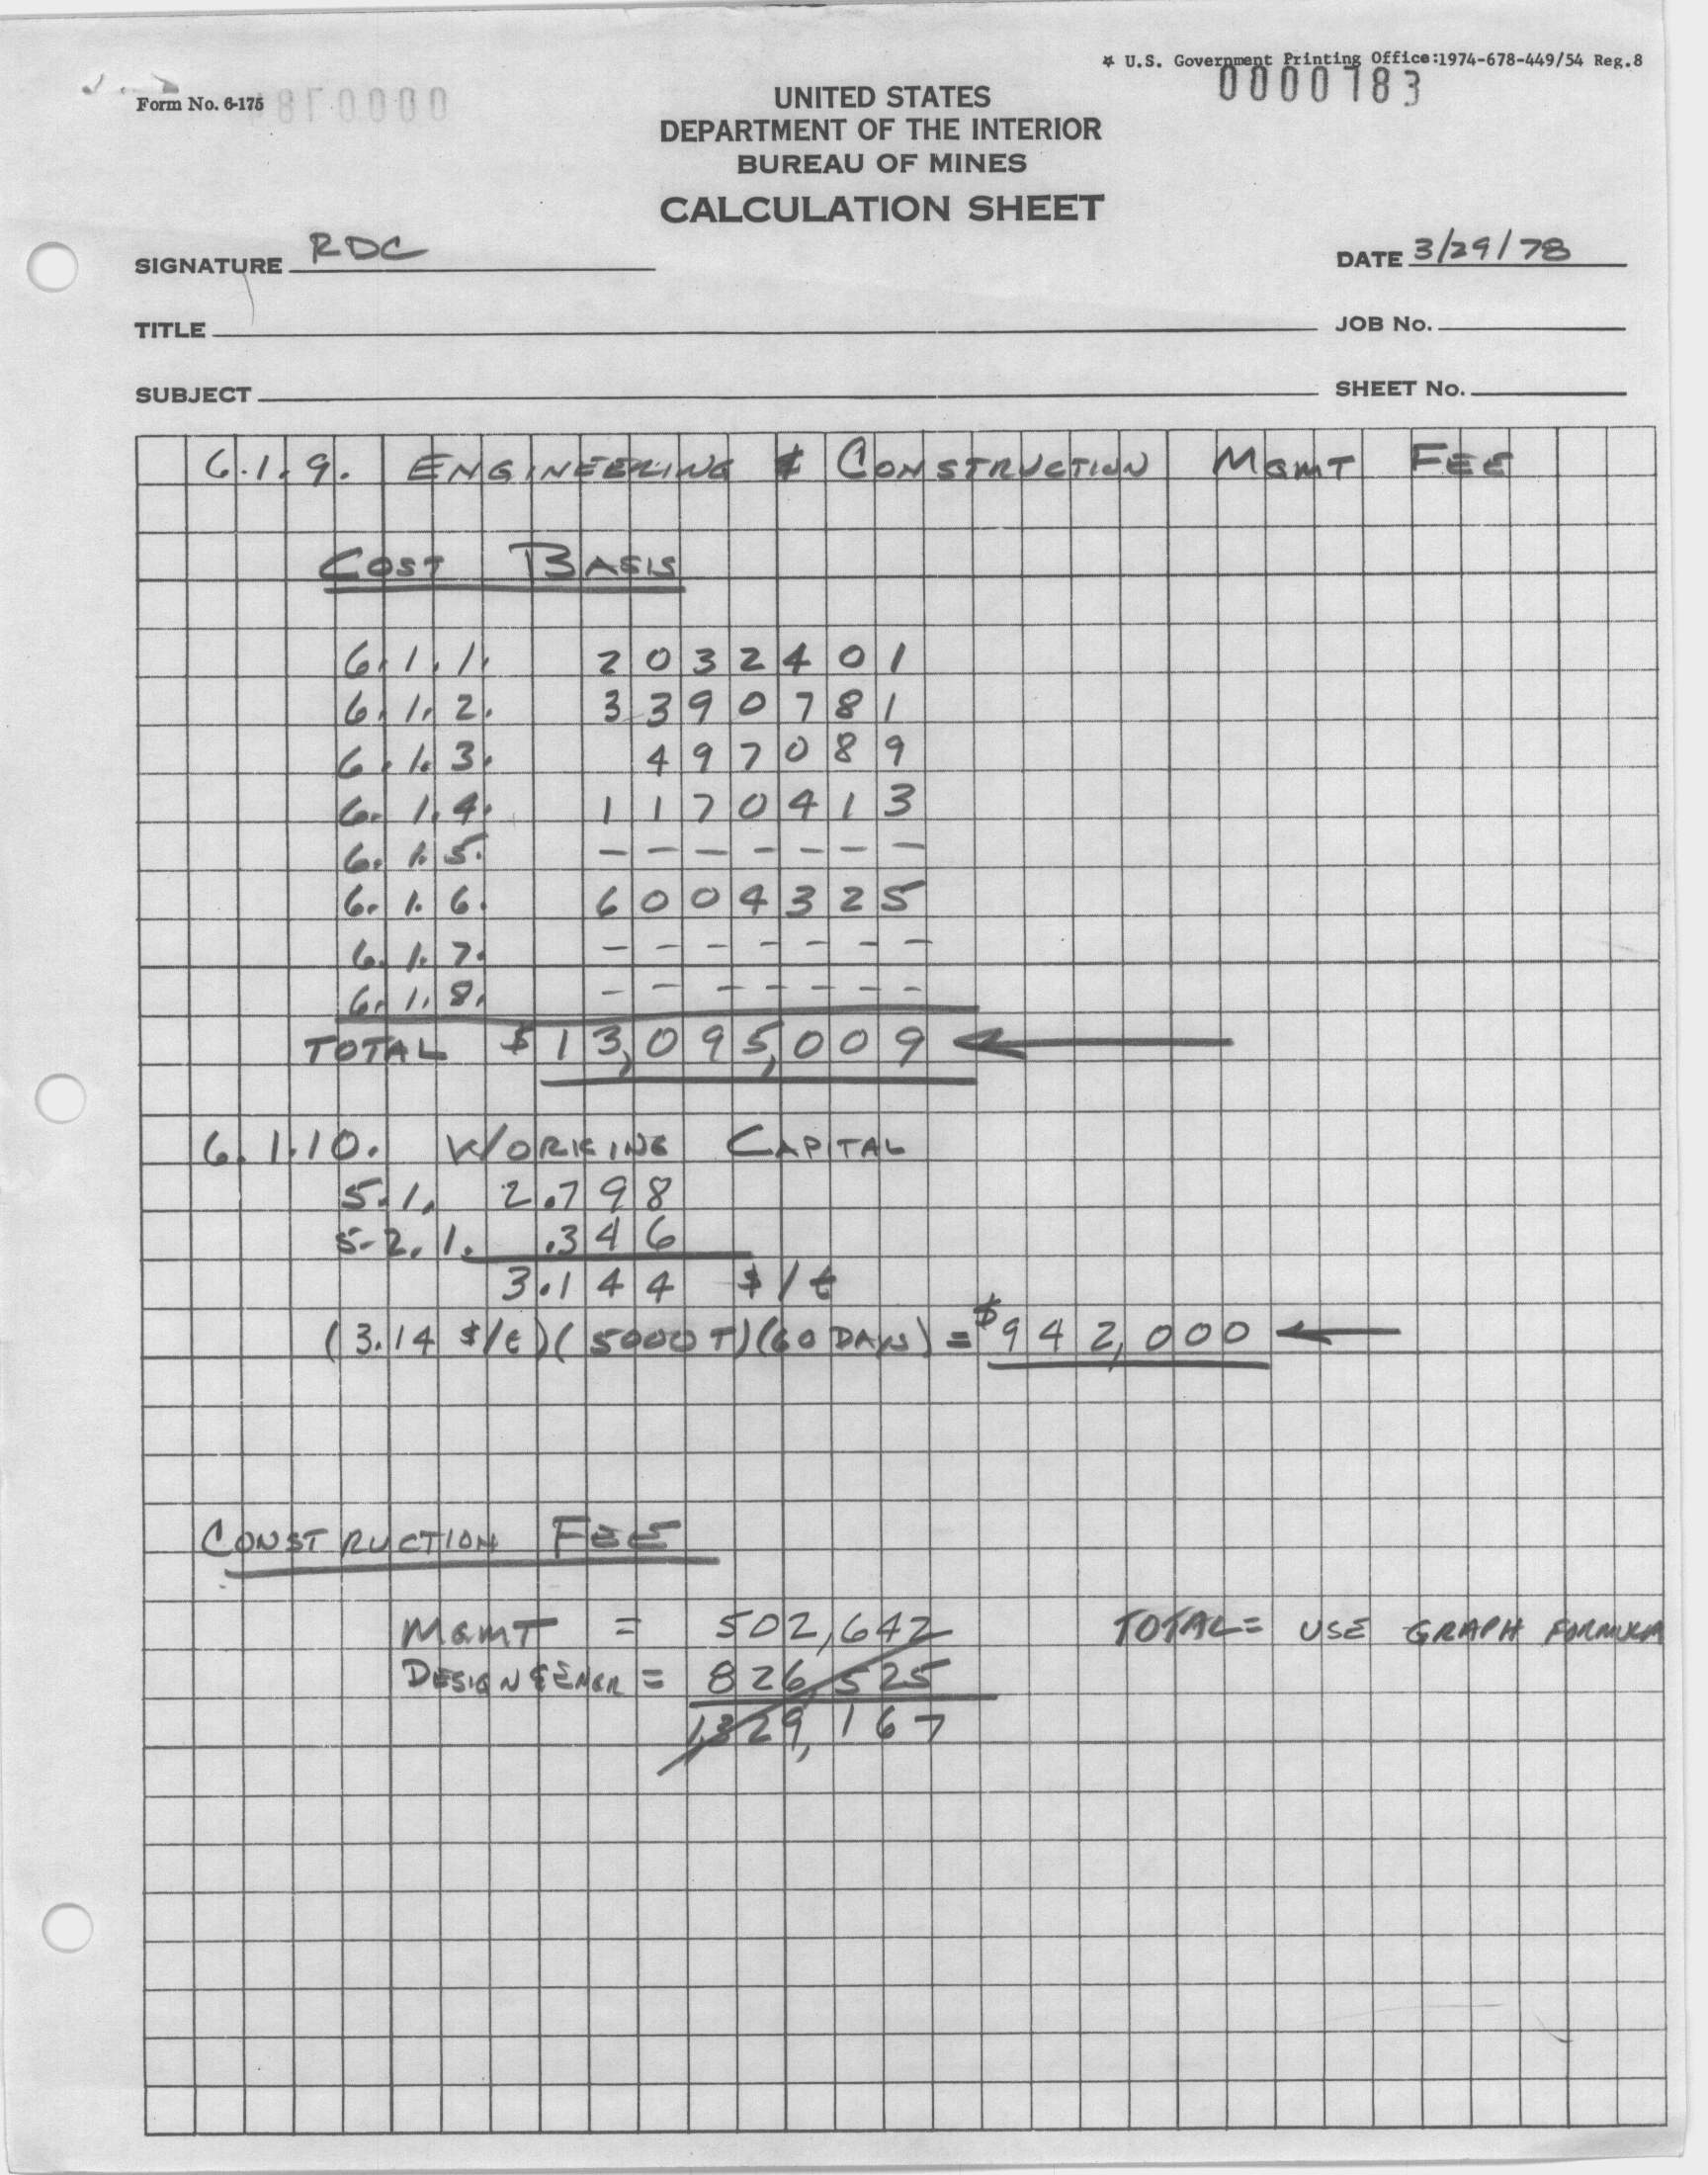 ☆ U.S. Government Printing Office:1974-678-449/54 Reg.8
0000783
Form No. 6-175
UNITED STATES
DEPARTMENT OF THE INTERIOR
BUREAU OF MINES
CALCULATION SHEET
SIGNATURE RDC
DATE 3/29/78
TITLE
JOB No.
SUBJECT
SHEET No.
6.1.9. ENGINEERING & CONSTRUCTION MGMT FEE
COST BASIS
6.1.1. 2032401
6.1.2. 3390781
6.1.3. 497089
6.1.4. 1170413
6.1.5. - - - - - - -
6.1.6. 6004325
6.1.7. - - - - - - -
6.1.8. - - - - - - -
TOTAL $13,095,009
6.1.10. WORKING CAPITAL
5.1. 2.798
5.2.1. .346
3.144 $/t
(3.14 $/t)(5000T)(60 DAYS) = $942,000
CONSTRUCTION FEE
MGMT = 502,642 TOTAL = USE GRAPH FORMULA
DESIGN & ENGR = 826,525
1,329,167